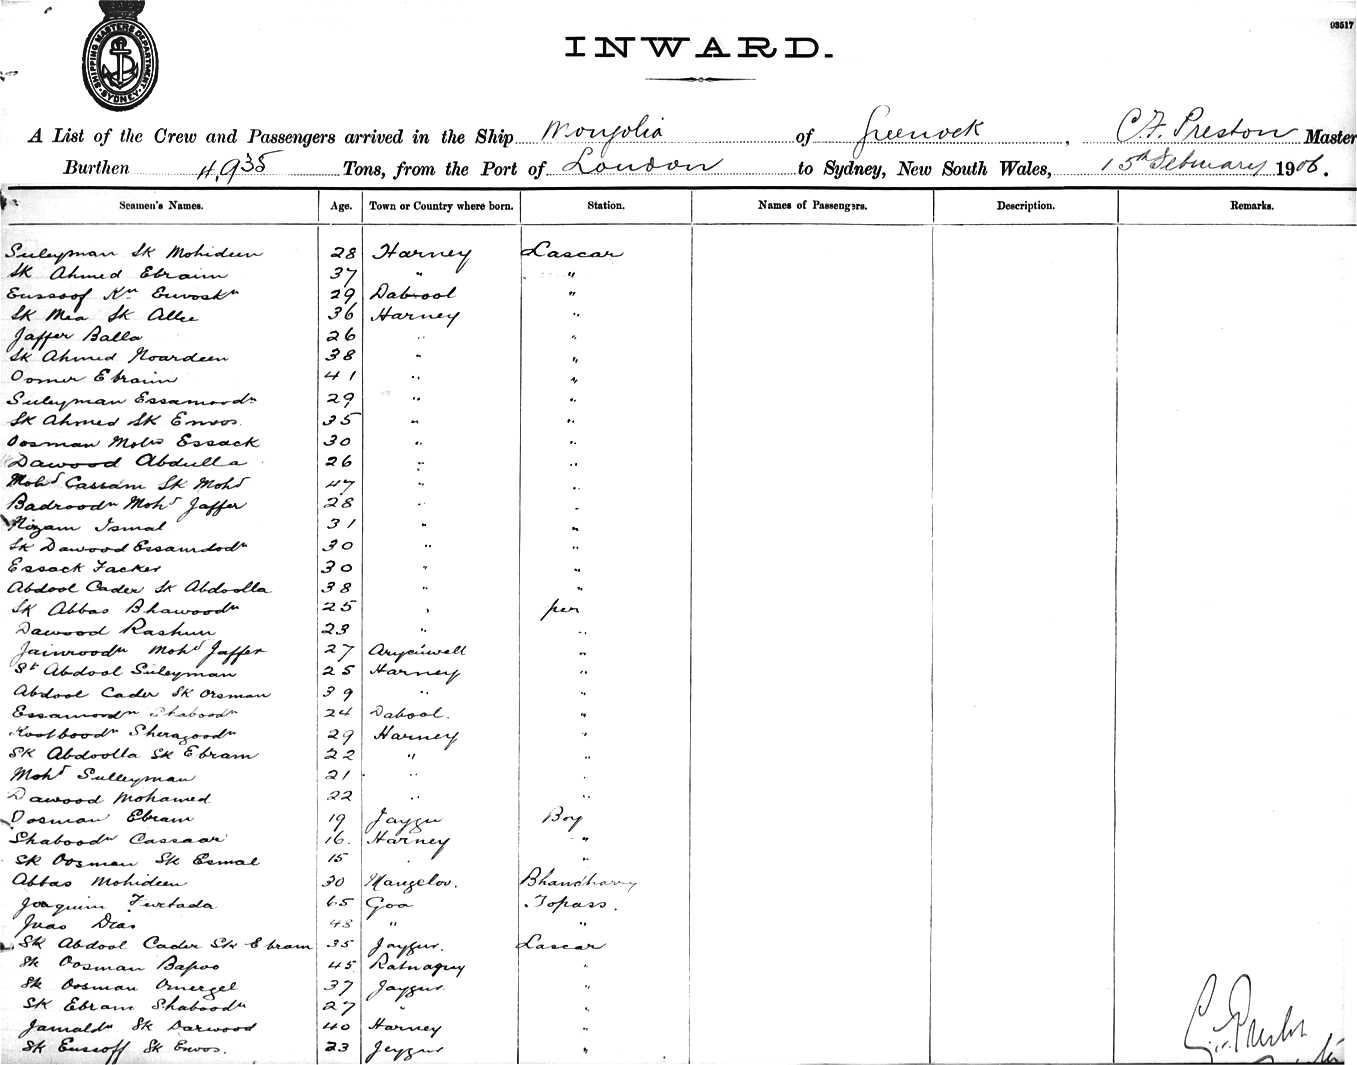 SHIPPING MASTERS DEPARTMENT
SYDNEY
93517
INWARD.
A List of the Crew and Passengers arrived in the Ship Mongolia of Greenock, C.F. Preston Master
Burthen 4,935 Tons, from the Port of London to Sydney, New South Wales, 15th February 1906.
Seamen's Names. Age. Town or Country where born. Station. Names of Passengers. Description. Remarks.
Suleyman Sk Mohideen 28 Harney Lascar
Sk Ahmed Ebraim 37 " "
Eussoof 29 Dabool "
Sk Mea Sk Allee 36 Harney "
Jaffer Balla 26 " "
Sk Ahmed Noardeen 38 " "
Oomer Ebraim 41 " "
Suleyman Essamoodn 29 " "
Sk Ahmed Sk Enoos 35 " "
Oosman Mohd Essack 30 " "
Dawood Abdulla 26 " "
Mohd Cassam Sk Mohd 47 " "
Badroodn Mohd Jaffer 28 " "
Nizam Ismal 31 " "
Sk Dawood Essamdodn 30 " "
Essack Facker 30 " "
Abdool Cader Sk Abdoolla 38 " "
Sk Abbas Bhawoodn 25 " per
Dawood Rashun 23 " "
Jainroodn Mohd Jaffer 27 "
St Abdool Suleyman 25 Harney "
Abdool Cader Sk Orsman 39 " "
Essamordn Shaboodn 24 Dabool. "
Kootboodn Sheragoodn 29 Harney "
Sk Abdoolla Sk Ebram 22 " "
Mohd Sulleyman 21 " "
Dawood Mohamed 22 " "
Oosman Ebram 19 Jaygur Boy
Shaboodn Cassaar 16. Harney "
Sk Oosman Sk Esmal 15 " "
Abbas Mohideen 30 Mangelov. Bhandharry
Joaquim Furtada 65 Goa Topass.
Juao Dias 48 " "
Sk Abdool Cader Sk Ebram 35 Jaygur. Lascar
Sk Oosman Bapoo 45 Ratnaguy "
Sk Oosman Omergel 37 Jaygur "
Sk Ebram Shaboodn 27 " "
Jamaldn Sk Darwood 40 Harney "
Sk Eussoff Sk Enoos. 23 Jeygur "
C.F. Preston